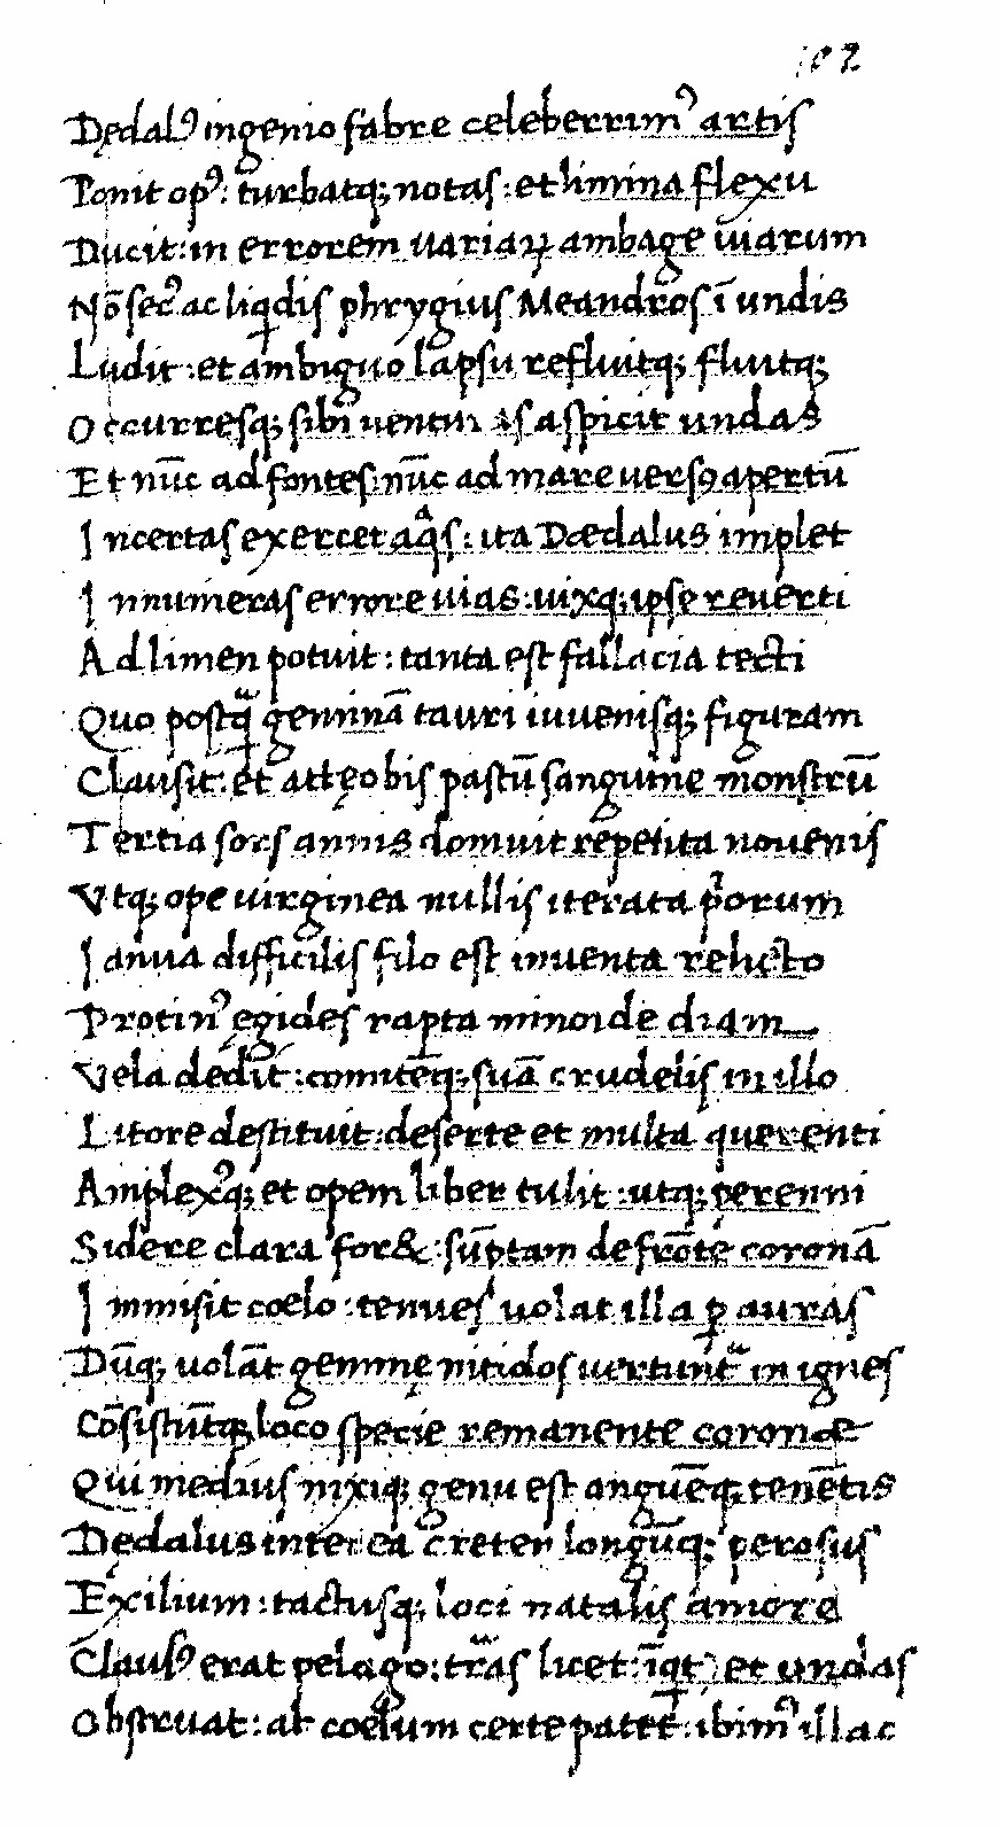 102
Dędalꝰ ingenio fabre celeberrimꝰ artis
Ponit opꝰ: turbatq; notas: et limina flexu
Ducit: in errorem uariaꝝ ambage uiarum
Nō secꝰ ac liqdis phrygius Meandros ī undis
Ludit: et ambiguo lapsu refluitq; fluitq;
Occurresq; sibi uenturas aspicit undas
Et nūc ad fontes: nūc ad mare versꝰ apertū
Incertas exercet aqᵃs: ita Dædalus implet
Innumeras errore uias: uixq; ipse reuerti
Ad limen potuit: tanta est fallacia tecti
Quo postqᵃ̄ geminā tauri iuuenisq; figuram
Clausit: et attęobis pastū sanguine monstrū
Tertia sors annis domuit repetita nouenis
Vtq; ope uirginea nullis iterata pⁱorum
Ianua difficilis filo est inuenta relicto
Protinꝰ ęgides rapta minoide diam
Vela dedit: comitēq; suā crudelis in illo
Litore destituit: deserte et multa querenti
Amplexꝰq; et opem liber tulit: utq; perenni
Sidere clara for&: sūptam de frōte coronā
Immisit coelo: tenues uolat illa ꝑ auras
Dūq; uolāt gemmę nitidos uertuntᵘ in ignes
Cōsistūtq; loco specie remanente coronæ
Qui medius nixiq; genu est anguēq; tenētis
Dędalus interea Creten longūq; perosus
Exilium: tactusq; loci natalis amore
Clausꝰ erat pelago: trᵃs licet: īqt: et undas
Obstruat: at coelum certe patet: ibimꝰ illac